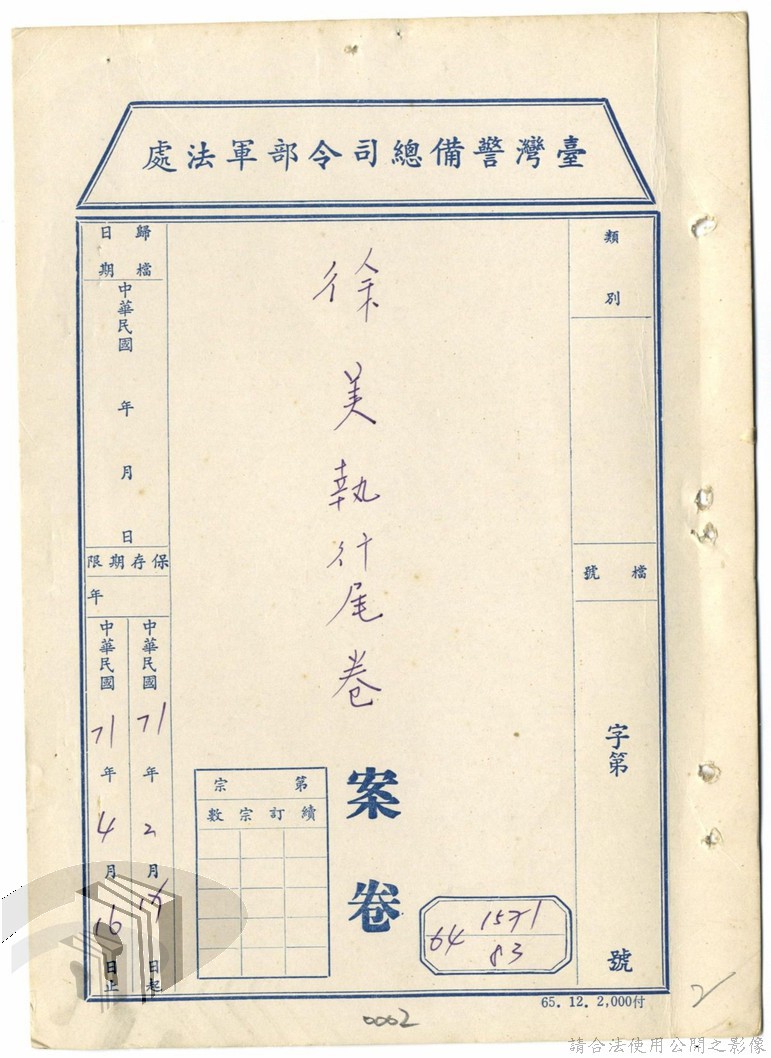 臺灣警備總司令部軍法處
類別
檔號
字第
號
徐美執行尾卷
案卷
第宗
續訂宗數
64 1571/83
歸檔日期
中華民國 年 月 日
保存期限
年
中華民國71年2月 日起
中華民國71年4月16日止
65. 12. 2,000付
0002
2
請合法使用公開之影像